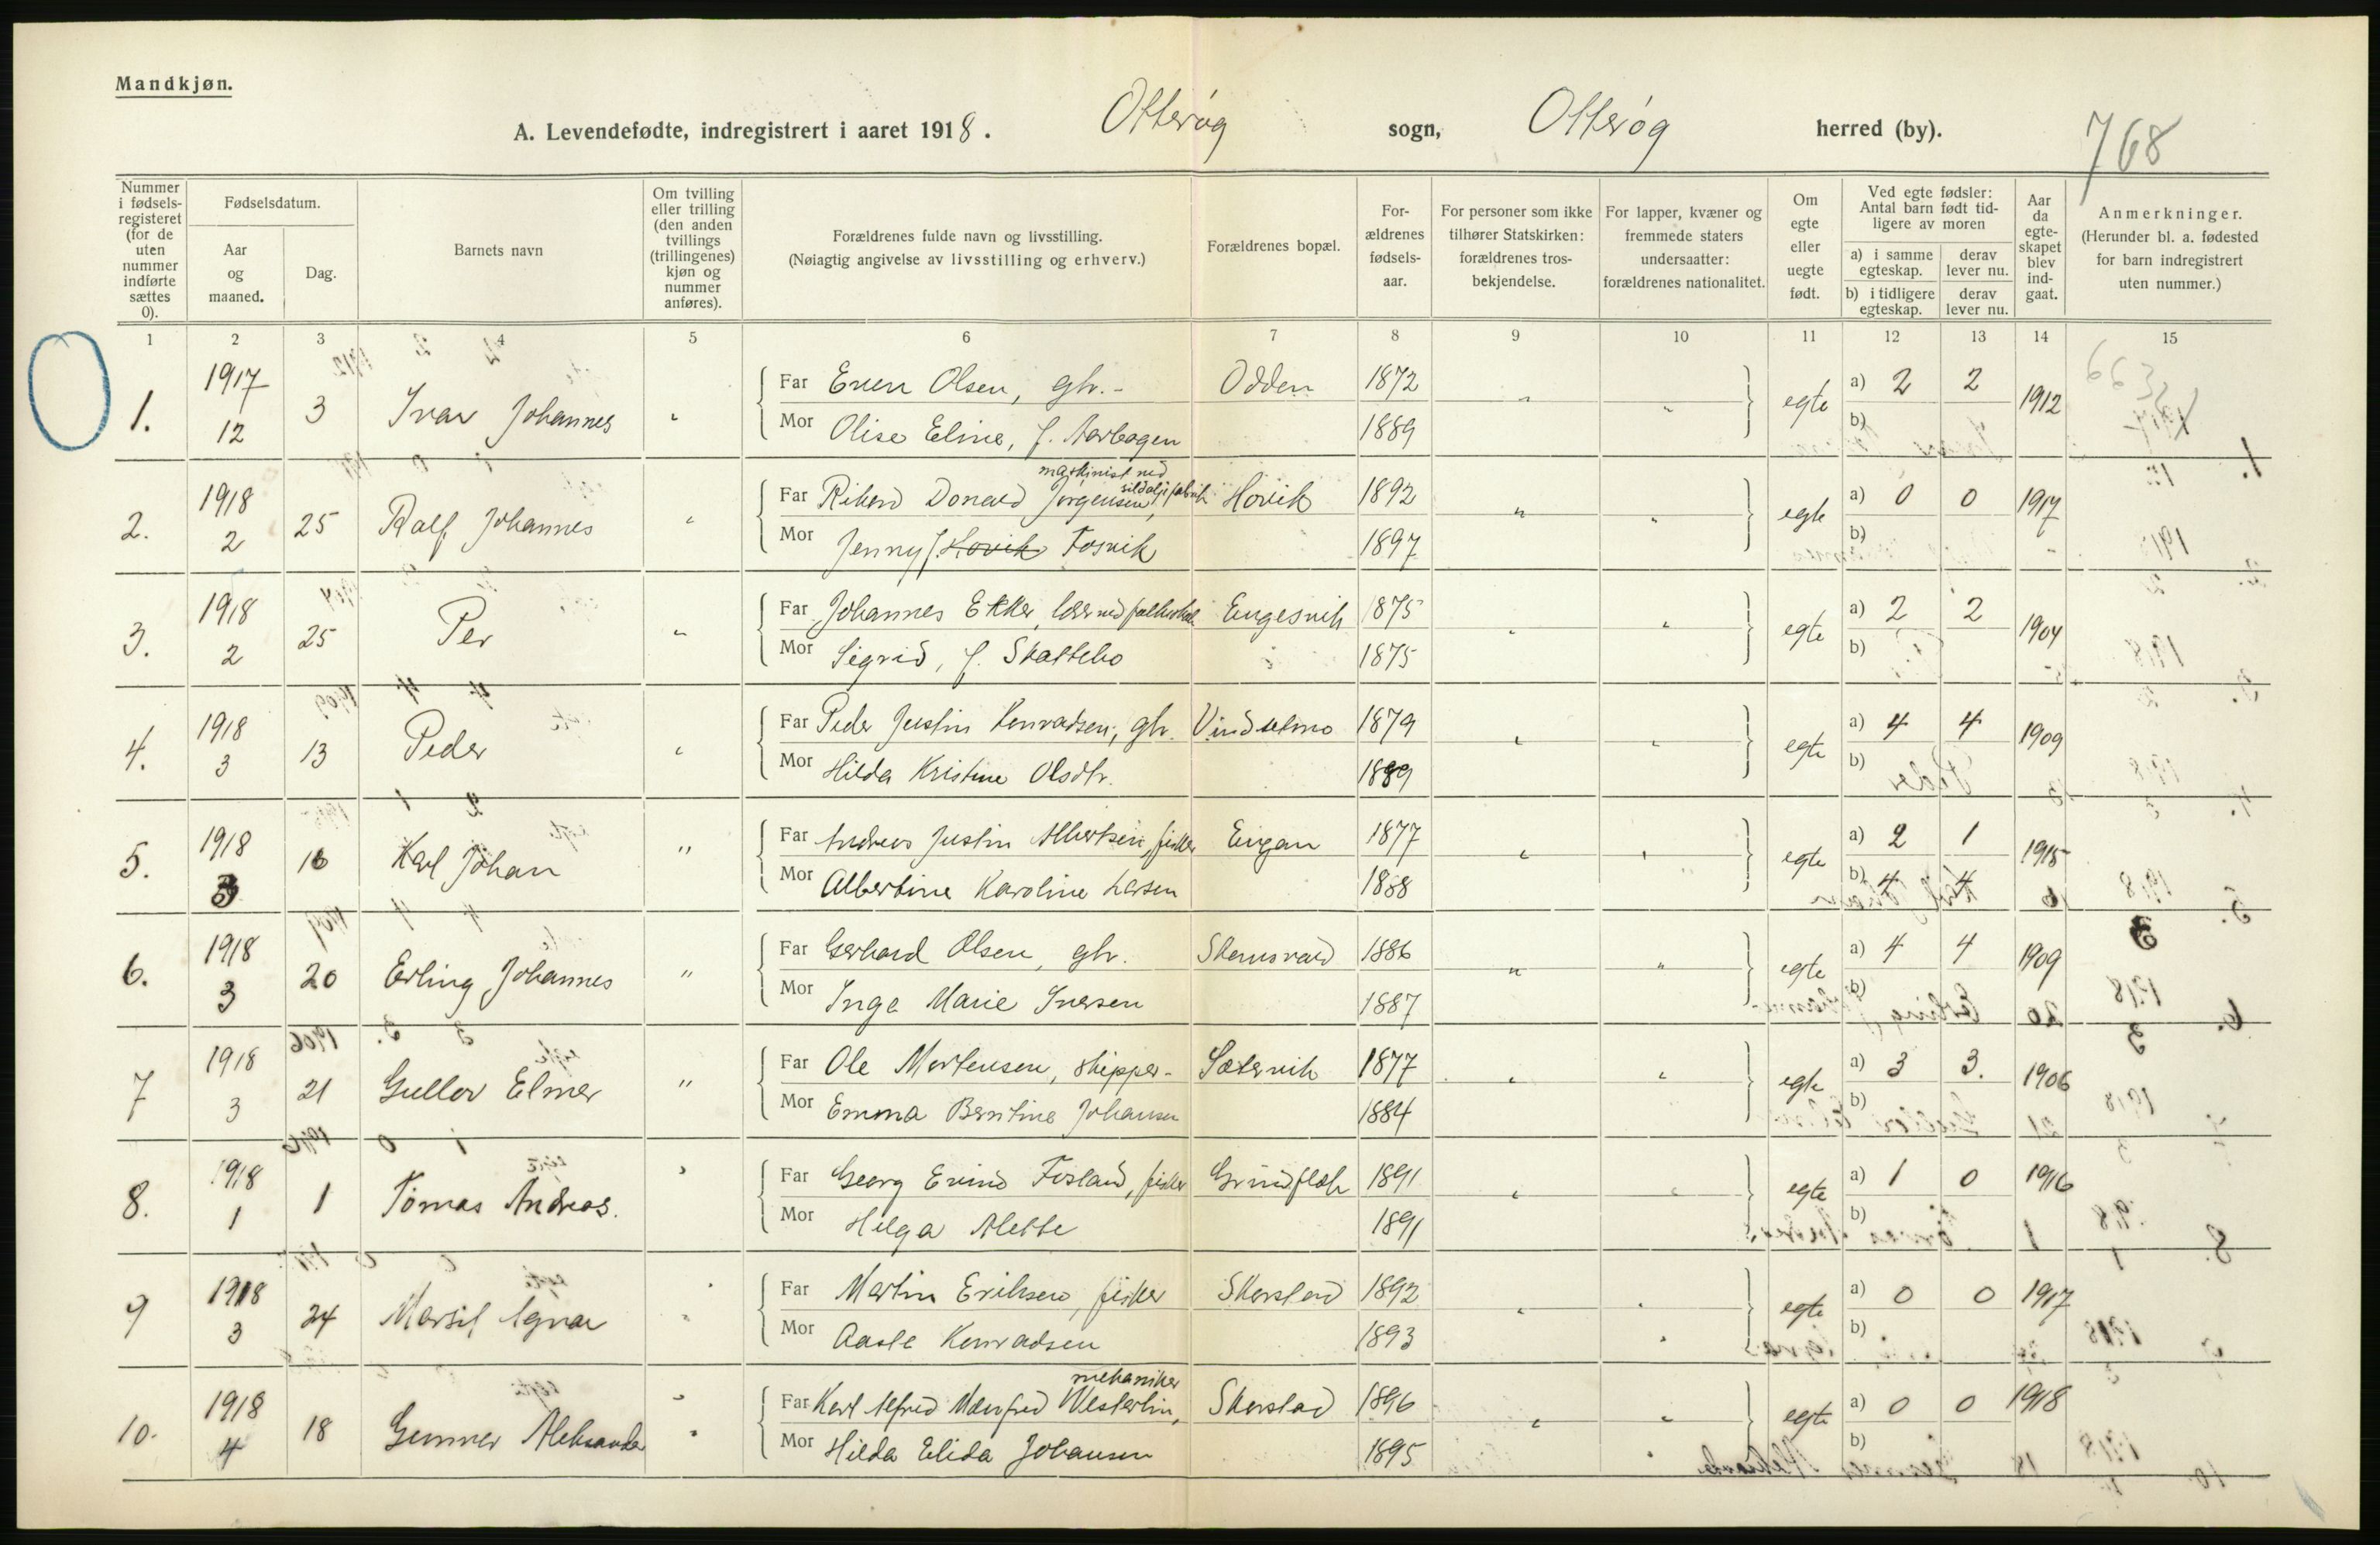 Mandkjøn.
A. Levendefødte, indregistrert i aaret 1918. Otterøy sogn, Otterøy herred (by).
768
Nummer i fødsels-registeret (for de uten nummer indførte sættes 0).
Fødselsdatum.
Aar og maaned.
Dag.
Barnets navn
Om tvilling eller trilling (den anden tvillings (trillingenes) kjøn og nummer anføres).
Forældrenes fulde navn og livsstilling.
(Nøiagtig angivelse av livsstilling og erhverv.)
Forældrenes bopæl.
For-ældrenes fødsels-aar.
For personer som ikke tilhører Statskirken: forældrenes tros-bekjendelse.
For lapper, kvæner og fremmede staters undersaatter: forældrenes nationalitet.
Om egte eller uegte født.
Ved egte fødsler: Antal barn født tid-ligere av moren
a) i samme egteskap. derav lever nu.
b) i tidligere egteskap. derav lever nu.
Aar da egte-skapet blev ind-gaat.
Anmerkninger.
(Herunder bl. a. fødested for barn indregistrert uten nummer.)
1 2 3 4 5 6 7 8 9 10 11 12 13 14 15
1. 1917 12 3 Ivar Johannes " Far Even Olsen, gbr. - Odden 1872 " " egte a) 2 2 1912
Mor Olise Eline, f. Aarbogen 1889 b)
maskinist ved sildoljefabrik
2. 1918 2 25 Ralf Johannes " Far Rikard Donald Jørgensen, Hovik 1892 " " egte a) 0 0 1917
Mor Jenny f. Hovik Fosvik 1897 b)
3. 1918 2 25 Per " Far Johannes Ekker, Engesvik 1875 " " egte a) 2 2 1904
Mor Sigrid, f. Skattebo 1875 b)
4. 1918 3 13 Peder " Far Peder Justin Konradsen, gbr. Vindsetmo 1879 " " egte a) 4 4 1909
Mor Hilda Kristine Olsdtr. 1889 b)
5. 1918 3 16 Karl Johan " Far Andreas Justin Albertsen, fisker Engan 1877 " " egte a) 2 1 1915
Mor Albertine Karoline Larsen 1888 b) 4 4
6. 1918 3 20 Erling Johannes " Far Gerhard Olsen, gbr. 1886 " " egte a) 4 4 1909
Mor Inga Marie Iversen 1887 b)
7 1918 3 21 Gullov Elmer " Far Ole Mortensen, skipper - Sætervik 1877 " " egte a) 3 3. 1906
Mor Emma Berntine Johansen 1884 b)
8. 1918 1 1 Tomas Andreas. " Far Georg Evind Fosland, fisker 1891 " " egte a) 1 0 1916
Mor Helga Alette 1891 b)
9 1918 3 24 Marsil Agnar " Far Martin Eriksen, fisker Skorstad 1892 " " egte a) 0 0 1917
Mor Aaste Konradsen 1893 b)
mekaniker
10. 1918 4 18 Gunnar Aleksander " Far Karl Alfred Manfred Westerlin, Skorstad 1896 " " egte a) 0 0 1918
Mor Hilda Elida Johansen 1895 b)